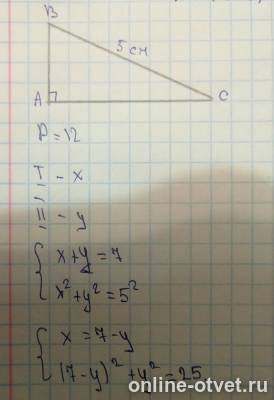 B
5 см
A
C
P = 12
I - x
II - y
x + y = 7
x² + y² = 5²
x = 7 - y
(7 - y)² + y² = 25
online-otvet.ru